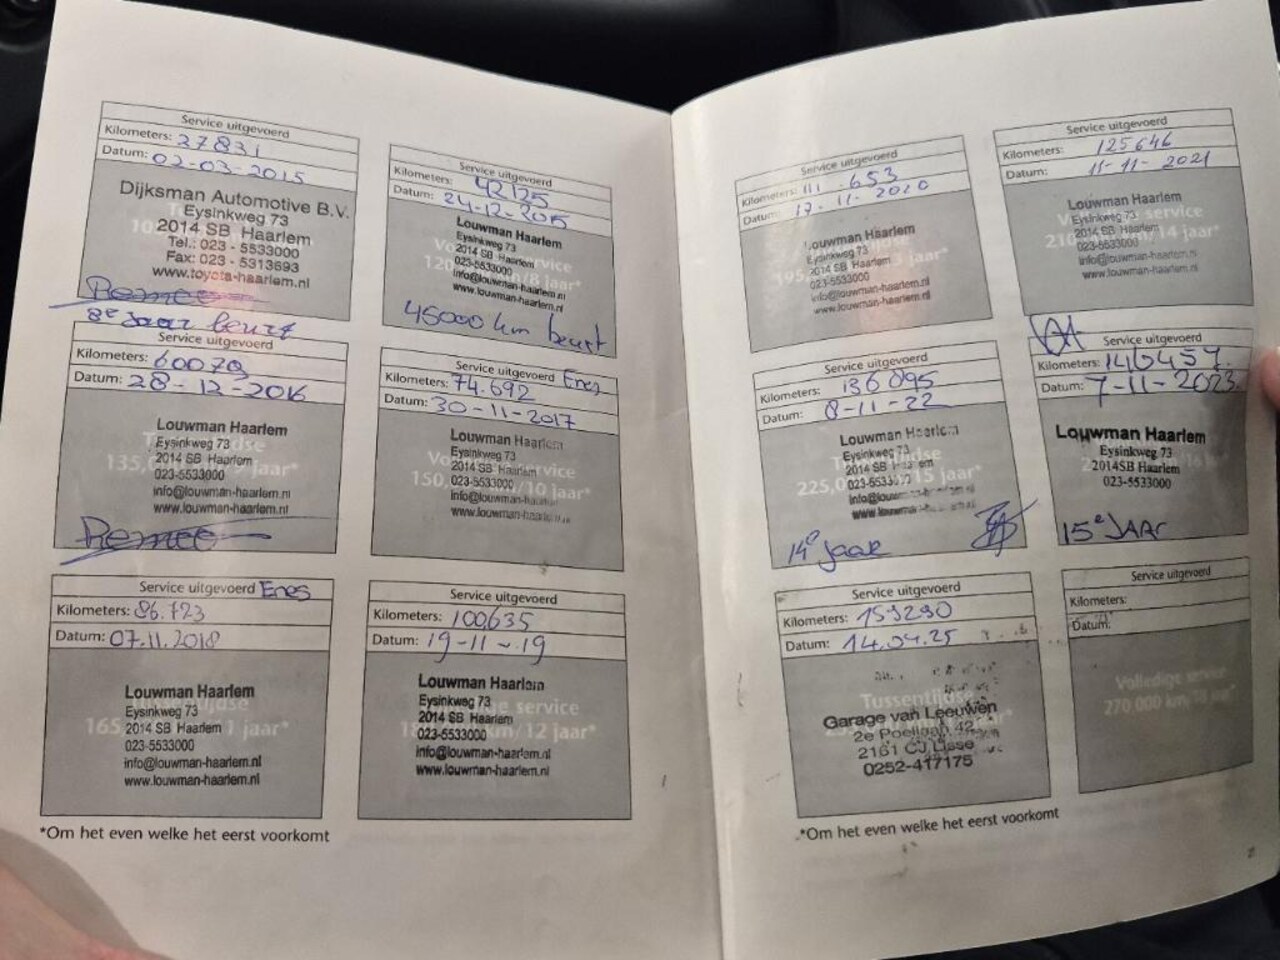 Service uitgevoerd
Kilometers: 27831
Datum: 02-03-2015
Dijksman Automotive B.V.
Eysinkweg 73
2014 SB Haarlem
Tel.: 023 - 5533000
Fax: 023 - 5313693
www.toyota-haarlem.nl
8e Jaar beurt
Service uitgevoerd
Kilometers: 42125
Datum: 24-12-2015
Louwman Haarlem
Eysinkweg 73
2014 SB Haarlem
023-5533000
info@louwman-haarlem.nl
www.louwman-haarlem.nl
45000 km beurt
Service uitgevoerd
Kilometers: 60079
Datum: 28-12-2016
Louwman Haarlem
Eysinkweg 73
2014 SB Haarlem
023-5533000
info@louwman-haarlem.nl
www.louwman-haarlem.nl
Service uitgevoerd Enes
Kilometers: 74.692
Datum: 30-11-2017
Louwman Haarlem
Eysinkweg 73
2014 SB Haarlem
023-5533000
info@louwman-haarlem.nl
www.louwman-haarlem.nl
Service uitgevoerd Enes
Kilometers: 86.723
Datum: 07.11.2018
Louwman Haarlem
Eysinkweg 73
2014 SB Haarlem
023-5533000
info@louwman-haarlem.nl
www.louwman-haarlem.nl
Service uitgevoerd
Kilometers: 100635
Datum: 19-11-19
Louwman Haarlem
Eysinkweg 73
2014 SB Haarlem
023-5533000
info@louwman-haarlem.nl
www.louwman-haarlem.nl
*Om het even welke het eerst voorkomt
Service uitgevoerd
Kilometers: 111.653
Datum: 17-11-2020
Louwman Haarlem
Eysinkweg 73
2014 SB Haarlem
023-5533000
info@louwman-haarlem.nl
www.louwman-haarlem.nl
Service uitgevoerd
Kilometers: 125646
Datum: 11-11-2021
Louwman Haarlem
Eysinkweg 73
2014 SB Haarlem
023-5533000
info@louwman-haarlem.nl
www.louwman-haarlem.nl
Service uitgevoerd
Kilometers: 136095
Datum: 8-11-22
Louwman Haarlem
Eysinkweg 73
2014 SB Haarlem
023-5533000
info@louwman-haarlem.nl
www.louwman-haarlem.nl
14e jaar
Service uitgevoerd
Kilometers: 146457.
Datum: 7-11-2023.
Louwman Haarlem
Eysinkweg 73
2014SB Haarlem
023-5533000
15e JAAR
Service uitgevoerd
Kilometers: 159290
Datum: 14.04.25
Tussentijdse
Garage van Leeuwen
2e Poellaan 42
2161 CJ Lisse
0252-417175
Service uitgevoerd
Kilometers:
Datum:
Volledige service
270,000 km/18 jaar*
*Om het even welke het eerst voorkomt